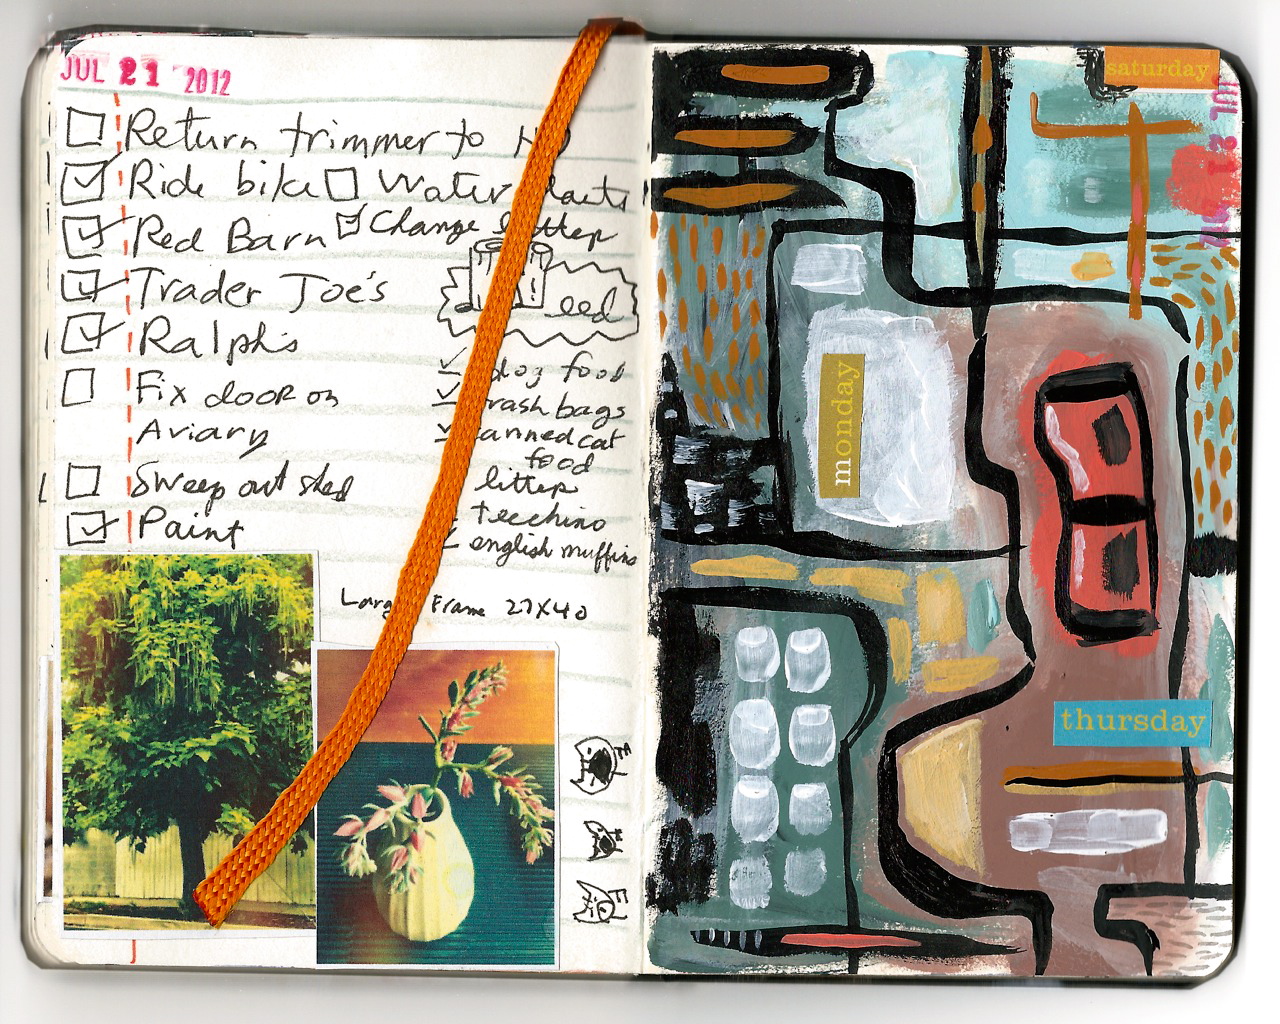 JUL 21 2012
Return trimmer to HD
Ride bike Water
Red Barn Change litter
Trader Joe's
Ralph's
Fix door on
Aviary
Sweep out shed
Paint
eed
dog food
trash bags
canned cat
food
litter
teechino
english muffins
Large Frame 27X40
saturday
JUL 21
monday
thursday